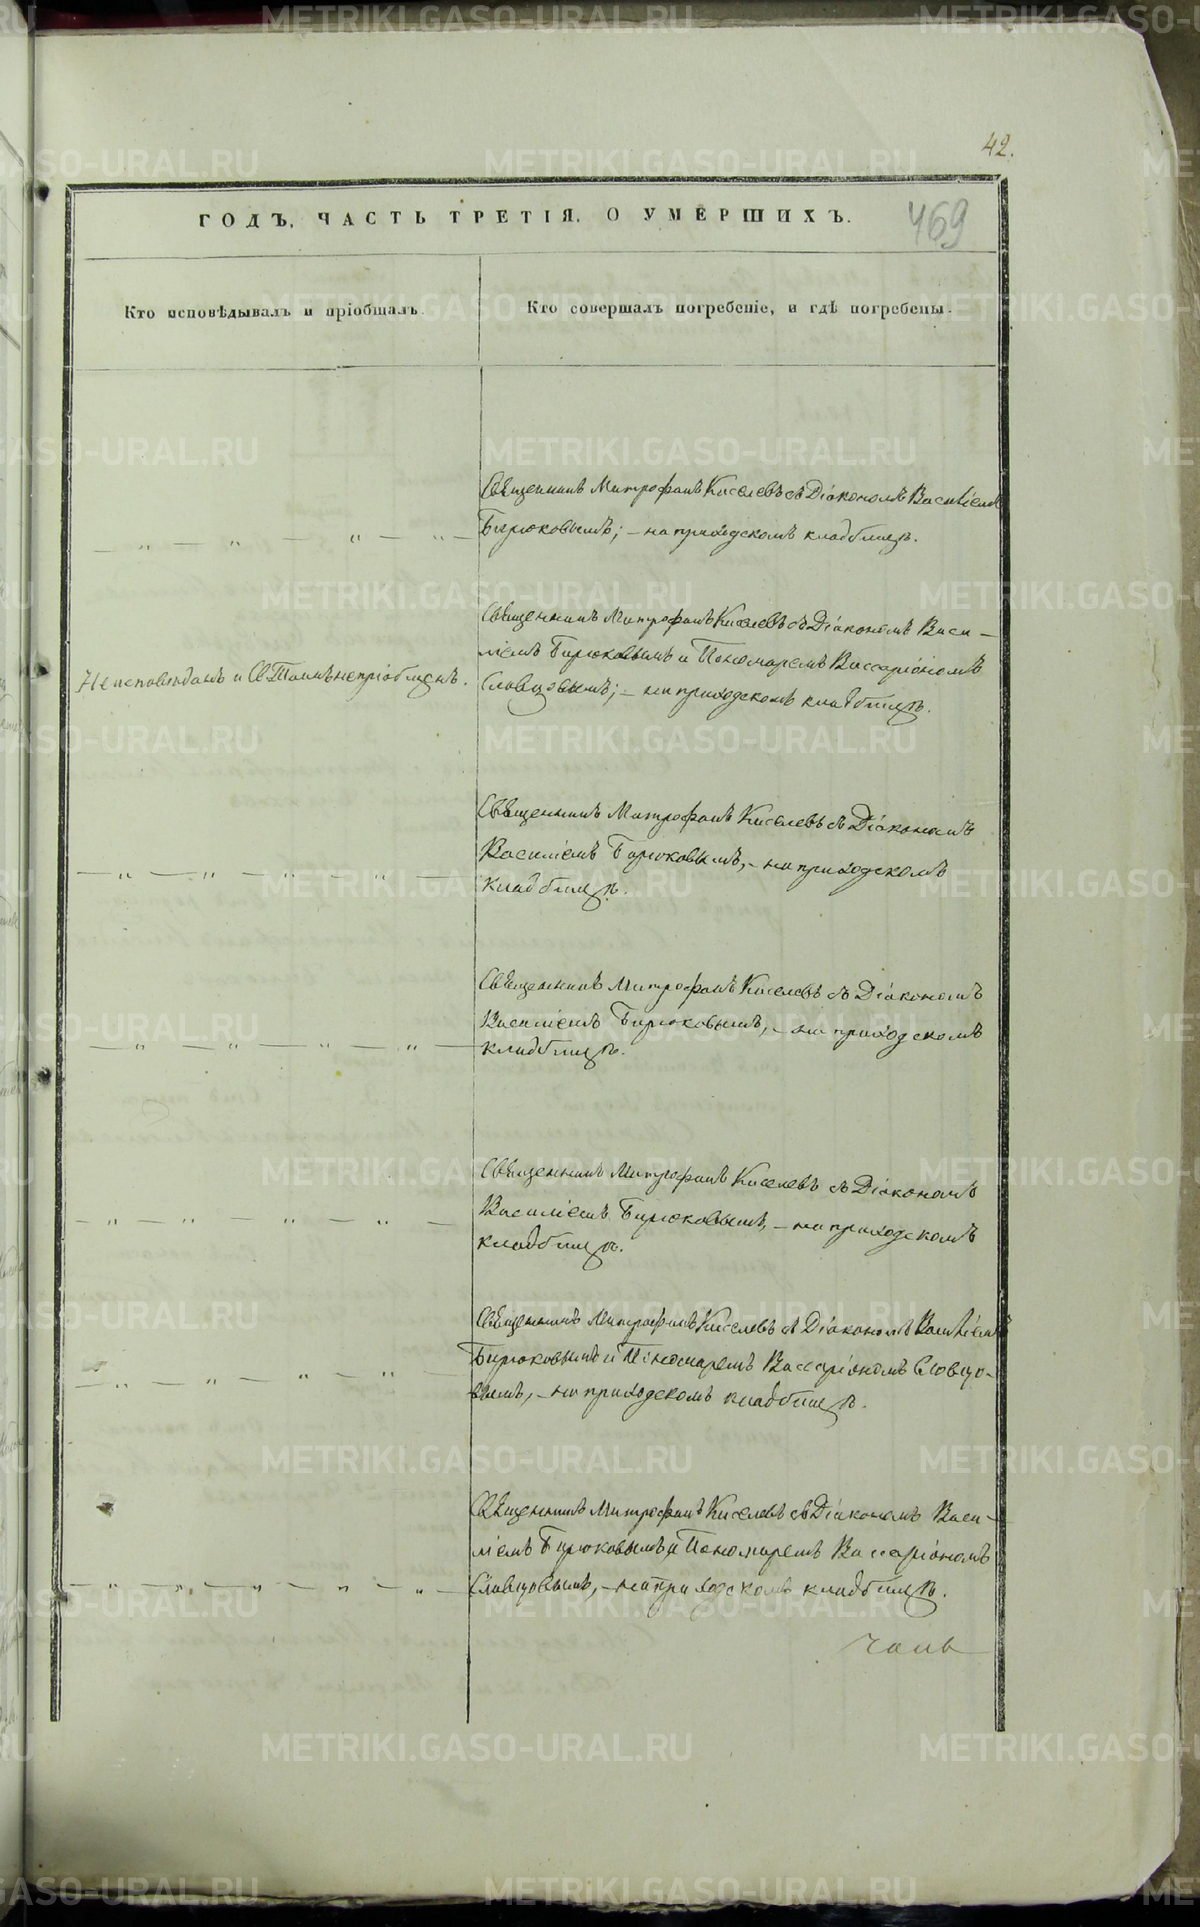 42.
ГОДЪ, ЧАСТЬ ТРЕТІЯ, О УМЕРШИХЪ.
469
Кто исповѣдывалъ и пріобщалъ.
Кто совершалъ погребеніе, и гдѣ погребены.
— „ — „ — „ — „ —
Священникъ Митрофанъ Киселевъ съ Діакономъ Василіемъ
Бирюковымъ; — на приходскомъ кладбищѣ.
Не исповѣданъ и Св. Таинъ не пріобщенъ.
Священникъ Митрофанъ Киселевъ съ Діакономъ Васи-
ліемъ Бирюковымъ и Пономаремъ Виссаріономъ
Словцовымъ; — на приходскомъ кладбищѣ.
— „ — „ — „ — „ —
Священникъ Митрофанъ Киселевъ съ Діакономъ
Василіемъ Бирюковымъ, — на приходскомъ
кладбищѣ.
— „ — „ — „ — „ —
Священникъ Митрофанъ Киселевъ съ Діакономъ
Василіемъ Бирюковымъ, — на приходскомъ
кладбищѣ.
— „ — „ — „ — „ —
Священникъ Митрофанъ Киселевъ съ Діакономъ
Василіемъ Бирюковымъ, — на приходскомъ
кладбищѣ.
— „ — „ — „ — „ —
Священникъ Митрофанъ Киселевъ съ Діакономъ Василіемъ
Бирюковымъ и Пономаремъ Виссаріономъ Словцо-
вымъ, — на приходскомъ кладбищѣ.
— „ — „ — „ — „ —
Священникъ Митрофанъ Киселевъ съ Діакономъ Васи-
ліемъ Бирюковымъ и Пономаремъ Виссаріономъ
Словцовымъ, — на приходскомъ кладбищѣ.
METRIKI.GASO-URAL.RU